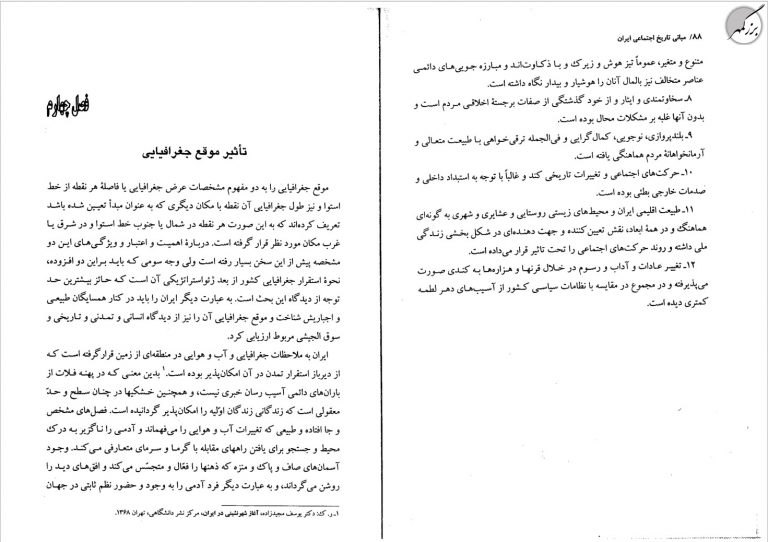 بزرگمهر
۸۸/ مبانی تاریخ اجتماعی ایران
متنوع و متغیر، عموماً تیز هوش و زیرک و با ذکاوت‌اند و مبارزه جویی‌های دائمی
عناصر متخالف نیز بالمال آنان را هوشیار و بیدار نگاه داشته است.
۸ـ سخاوتمندی و ایثار و از خود گذشتگی از صفات برجستهٔ اخلاقی مردم است و
بدون آنها غلبه بر مشکلات محال بوده است.
۹ـ بلندپروازی، نوجویی، کمال‌گرایی و فی‌الجمله ترقی‌خواهی با طبیعت متعالی و
آرمانخواهانهٔ مردم هماهنگی یافته است.
۱۰ـ حرکت‌های اجتماعی و تغییرات تاریخی کند و غالباً با توجه به استبداد داخلی و
صدمات خارجی بطئی بوده است.
۱۱ـ طبیعت اقلیمی ایران و محیط‌های زیستی روستایی و عشایری و شهری به گونه‌ای
هماهنگ و در همهٔ ابعاد، نقش تعیین کننده و جهت دهنده‌ای در شکل بخشی زندگی
ملی داشته و روند حرکت‌های اجتماعی را تحت تاثیر قرار می‌داده است.
۱۲ـ تغییر عادات و آداب و رسوم در خلال قرنها و هزاره‌ها به کندی صورت
می‌پذیرفته و در مجموع در مقایسه با نظامات سیاسی کشور از آسیب‌های دهر لطمه
کمتری دیده است.
فصل چهارم
تأثیر موقع جغرافیایی
موقع جغرافیایی را به دو مفهوم مشخصات عرض جغرافیایی یا فاصلهٔ هر نقطه از خط
استوا و نیز طول جغرافیایی آن نقطه با مکان دیگری که به عنوان مبدأ تعیین شده باشد
تعریف کرده‌اند که به این صورت هر نقطه در شمال یا جنوب خط استوا و در شرق یا
غرب مکان مورد نظر قرار گرفته است. دربارهٔ اهمیت و اعتبار و ویژگی‌های این دو
مشخصه پیش از این سخن بسیار رفته است ولی وجه سومی که باید براین دو افزوده،
نحوهٔ استقرار جغرافیایی کشور از بعد ژئواستراتژیکی آن است که حائز بیشترین حد
توجه از دیدگاه این بحث است. به عبارت دیگر ایران را باید در کنار همسایگان طبیعی
و اجباریش شناخت و موقع جغرافیایی آن را نیز از دیدگاه انسانی و تمدنی و تاریخی و
سوق الجیشی مربوط ارزیابی کرد.
ایران به ملاحظات جغرافیایی و آب و هوایی در منطقه‌ای از زمین قرارگرفته است که
از دیرباز استقرار تمدن در آن امکان‌پذیر بوده است.۱ بدین معنی که در پهنه فلات از
باران‌های دائمی آسیب رسان خبری نیست، و همچنین خشکیها در چنان سطح و حدّ
معقولی است که زندگانی زندگان اوّلیه را امکان‌پذیر گردانیده است. فصل‌های مشخص
و جا افتاده و طبیعی که تغییرات آب و هوایی را می‌فهماند و آدمی را ناگزیر به درک
محیط و جستجو برای یافتن راههای مقابله با گرما و سرمای متعارفی می‌کند. وجود
آسمان‌های صاف و پاک و منزه که ذهنها را فعّال و متجسّس می‌کند و افق‌های دید را
روشن می‌گرداند، و به عبارت دیگر فرد آدمی را به وجود و حضور نظم ثابتی در جهان
۱ـ ر. ک: دکتر یوسف مجیدزاده، آغاز شهرنشینی در ایران، مرکز نشر دانشگاهی، تهران ۱۳۶۸.